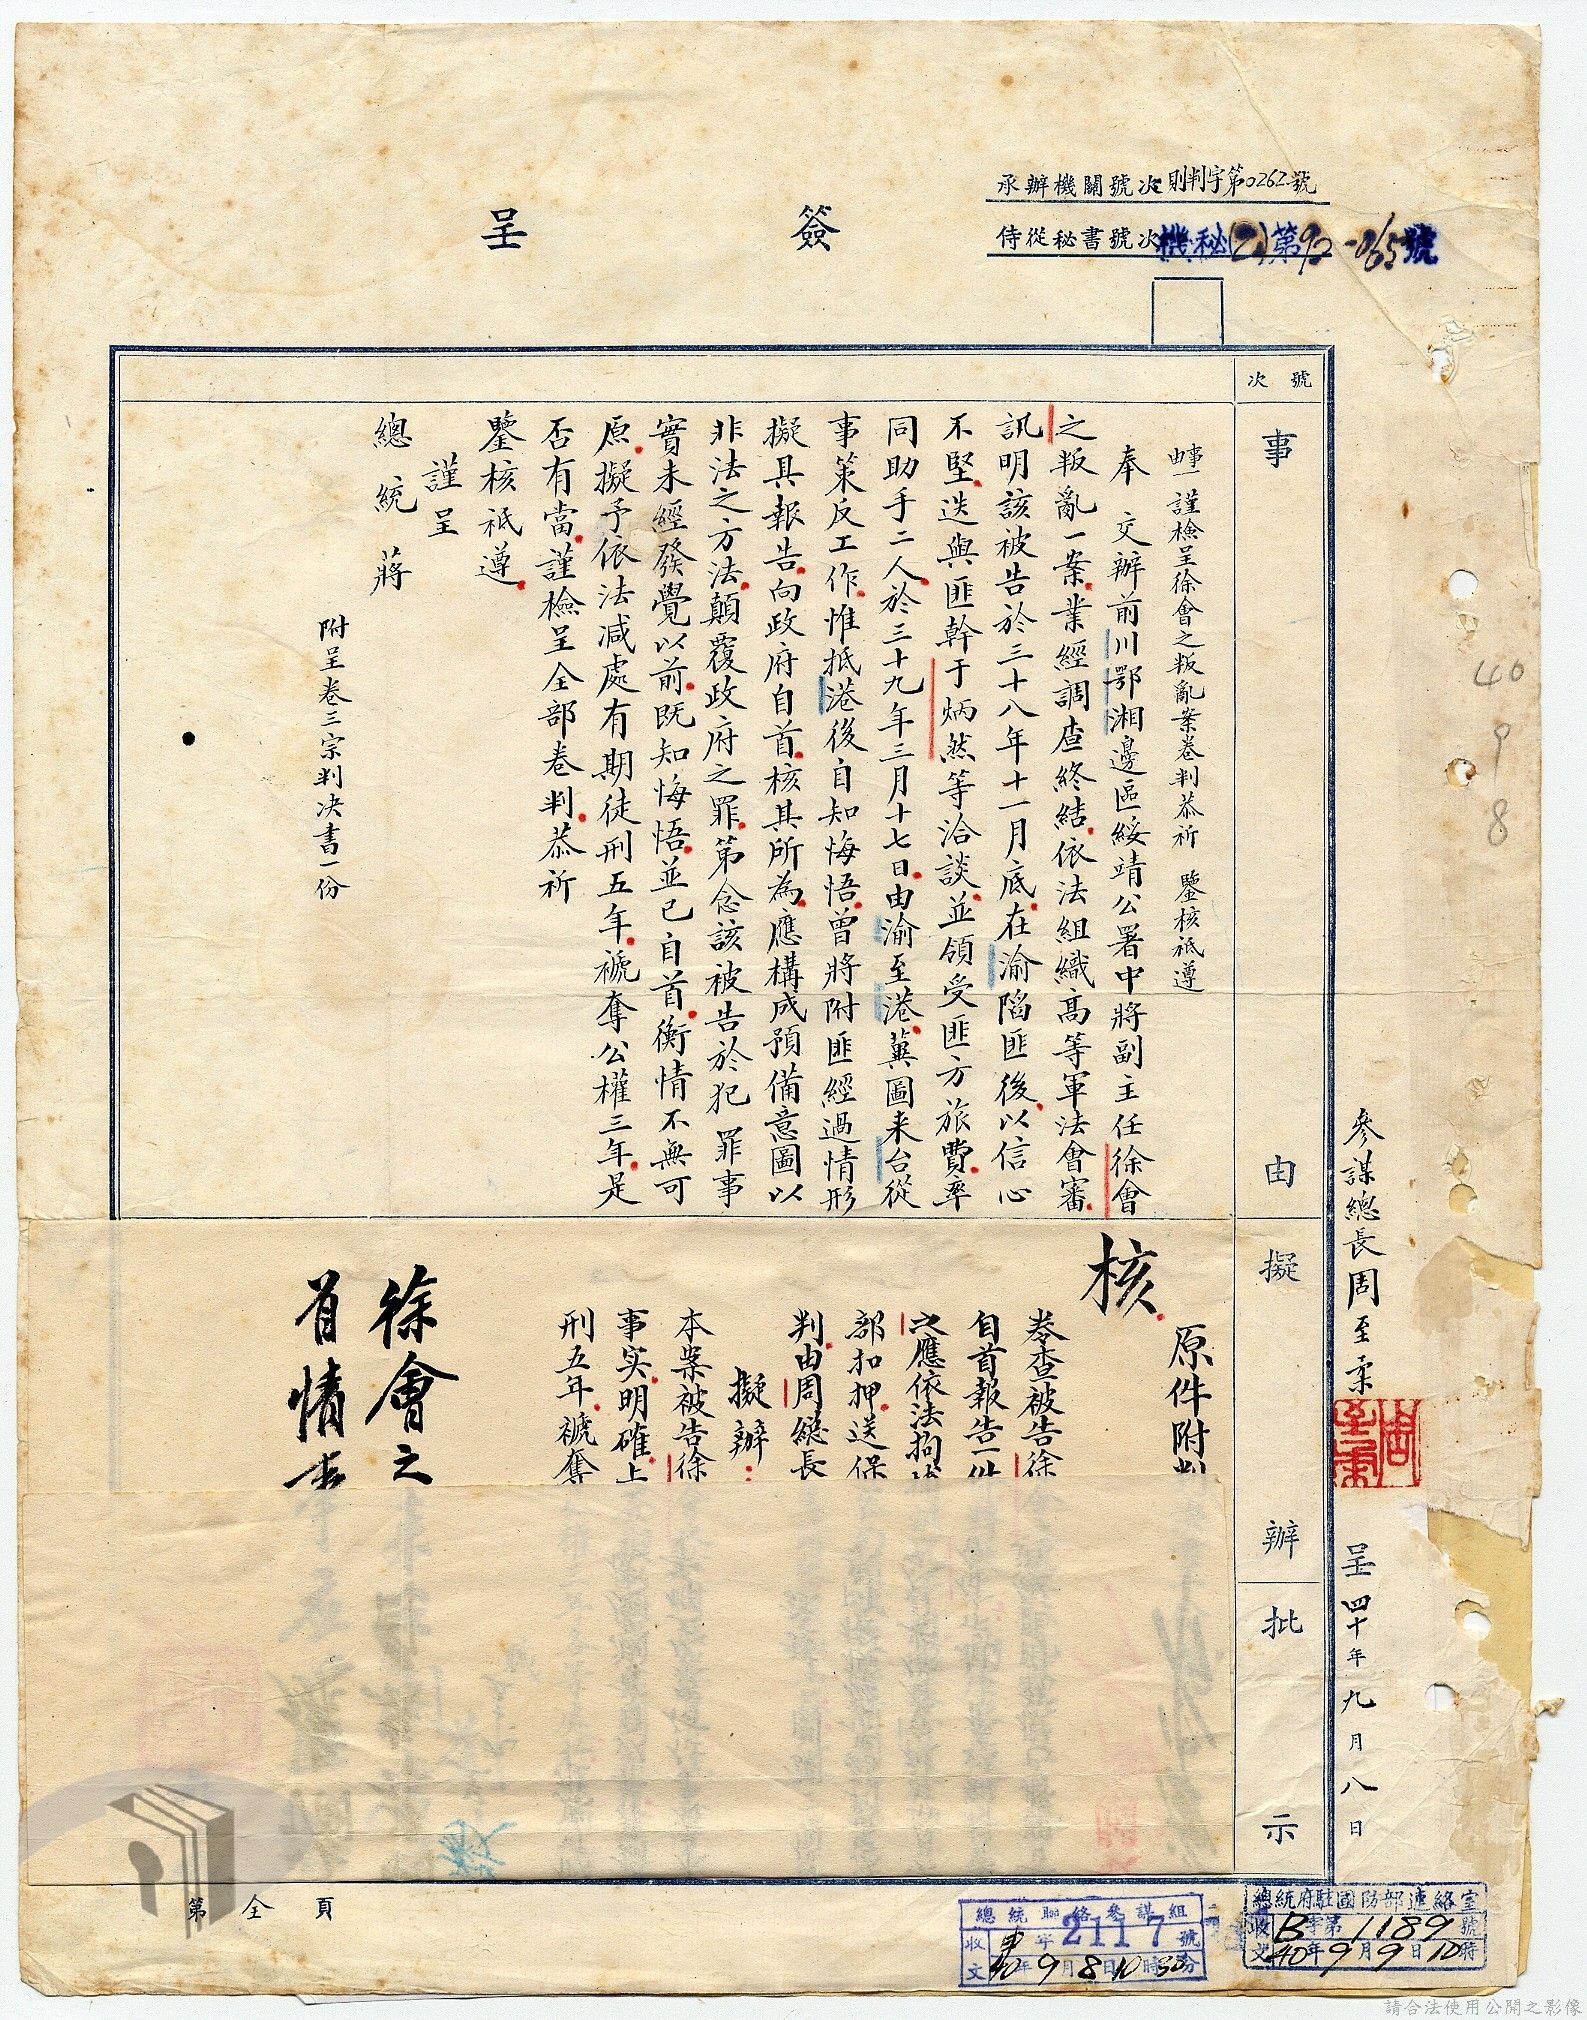 簽呈
承辦機關號次則判字第0262號
侍從秘書號次機秘(乙)第92-065號
號次
事由
擬辦
批示
事由一謹檢呈徐會之叛亂案卷判恭祈 鑒核祇遵
奉 交辦前川鄂湘邊區綏靖公署中將副主任徐會
之叛亂一案業經調查終結依法組織高等軍法會審
訊明該被告於三十八年十一月底在渝陷匪後以信心
不堅迭與匪幹于炳然等洽談並領受匪方旅費率
同助手二人於三十九年三月十七日由渝至港冀圖來台從
事策反工作惟抵港後自知悔悟曾將附匪經過情形
擬具報告向政府自首核其所為應構成預備意圖以
非法之方法顛覆政府之罪第念該被告於犯罪事
實未經發覺以前既知悔悟並已自首衡情不無可
原擬予依法減處有期徒刑五年褫奪公權三年是
否有當謹檢呈全部卷判恭祈
鑒核祇遵
謹呈
總統 蔣
附呈卷三宗判決書一份
參謀總長周至柔
呈 四十年九月八日
4098
核
原件附
卷查被告徐
自首報告一
之應依法拘
部扣押送保
判由周總長
擬辦：
本案被告徐
事实明確上
刑五年褫奪
徐會之
首情
第全頁
總統聯絡參謀組
收文 申字2117號
40年9月8日10時30分
總統府駐國防部連絡室
收文 B字第1189號
40年9月9日10時
請合法使用公開之影像